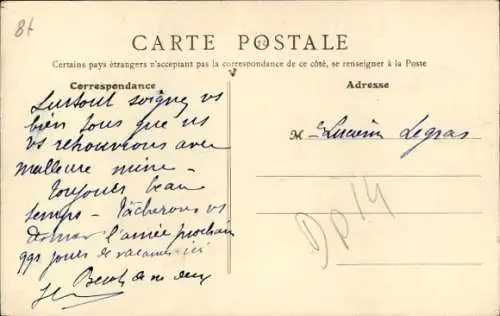 8t
CARTE POSTALE
Certains pays étrangers n'acceptant pas la correspondance de ce côté, se renseigner à la Poste
Correspondance
Surtout soignez vs
bien tous que ns
vs retrouvions avec
meilleure mine -
Toujours beau
temps - Tâcherons vs
donner l'année prochain
qqs jours de vacances ici
de nos deux
Adresse
Lucien Legras
Dp14